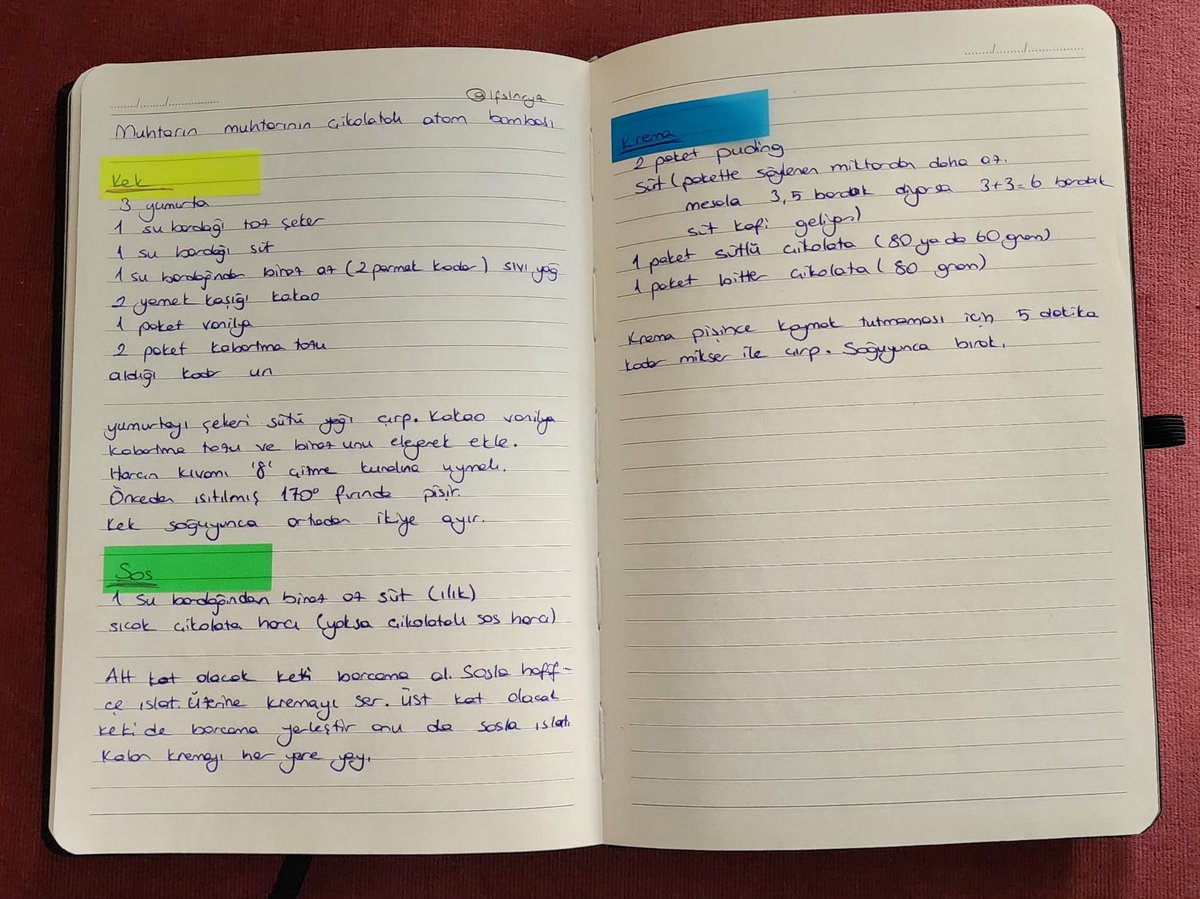 ......../......./...............
@lfslncyz
Muhtarın muhtarının çikolatalı atom bombası
Kek
3 yumurta
1 su bardağı toz şeker
1 su bardağı süt
1 su bardağından biraz az (2 parmak kadar) sıvı yağ
2 yemek kaşığı kakao
1 paket vanilya
2 paket kabartma tozu
aldığı kadar un
yumurtayı şekeri sütü yağı çırp. Kakao vanilya
kabartma tozu ve biraz unu eleyerek ekle.
Harcın kıvamı '8' çizme kuralına uymalı.
Önceden ısıtılmış 170° fırında pişir.
Kek soğuyunca ortadan ikiye ayır.
Sos
1 su bardağından biraz az süt (ılık)
sıcak çikolata harcı (yoksa çikolatalı sos harcı)
Alt kat olacak keki borcama al. Sosla hafif-
çe ıslat. Üzerine kremayı ser. Üst kat olacak
keki de borcama yerleştir onu da sosla ıslat.
Kalan kremayı her yere yay.
......./......./...............
Krema
2 paket puding
Süt (pakette söylenen miktardan daha az.
mesela 3,5 bardak diyorsa 3+3=6 bardak
süt kafi geliyor)
1 paket sütlü çikolata (80 ya da 60 gram)
1 paket bitter çikolata (80 gram)
Krema pişince kaymak tutmaması için 5 dakika
kadar mikser ile çırp. Soğuyunca bırak.